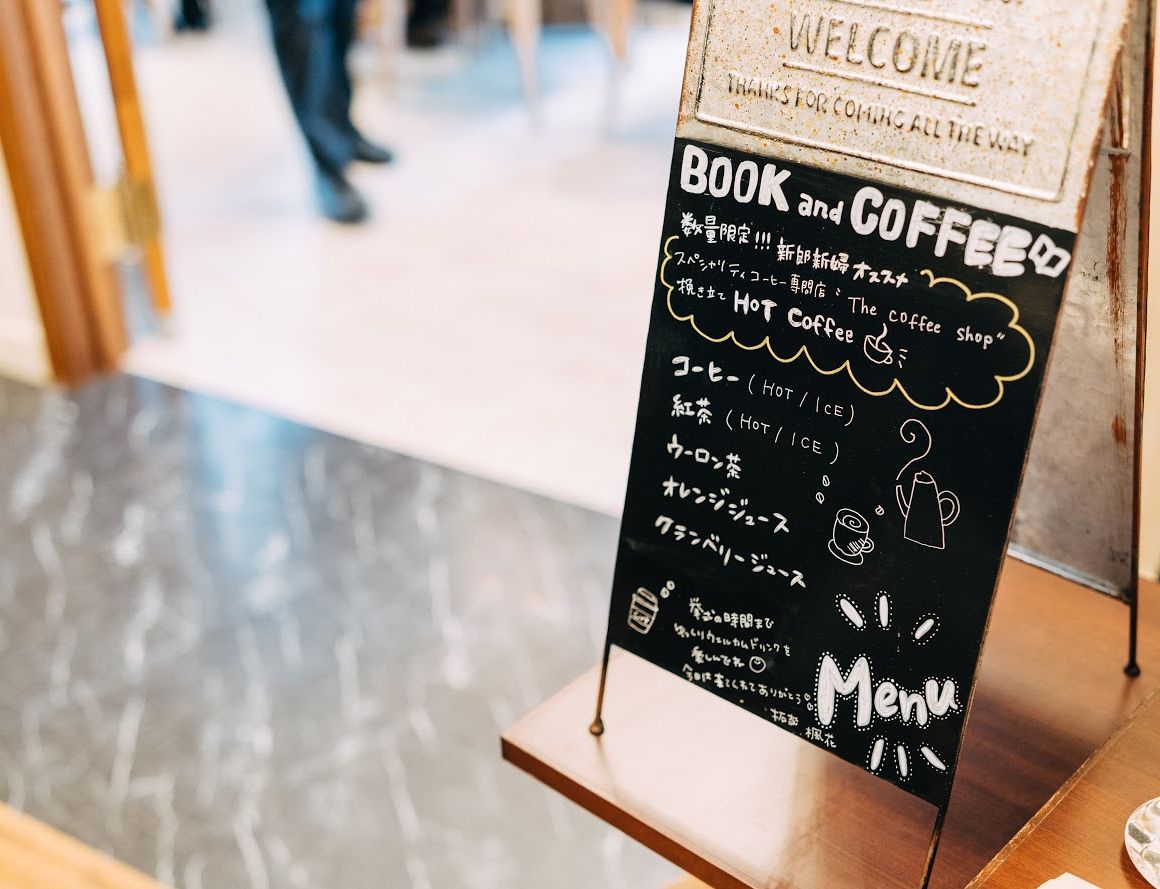 WELCOME
THANKS FOR COMING ALL THE WAY
BOOK and COFFEE
数量限定!!! 新郎新婦オススメ
スペシャリティコーヒー専門店: The coffee shop"
挽き立て HOT Coffee
コーヒー (HOT / ICE)
紅茶 (HOT / ICE)
ウーロン茶
オレンジジュース
クランベリージュース
挙式の時間まで
ゆっくりウェルカムドリンクを
楽しんでね
今日は来てくれてありがとう
楓花
Menu